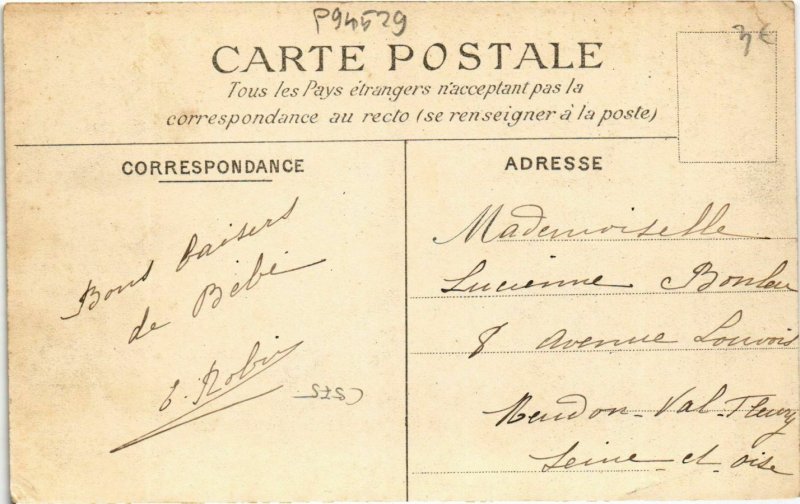 P94529
3€
CARTE POSTALE
Tous les Pays étrangers n'acceptant pas la
correspondance au recto (se renseigner à la poste)
CORRESPONDANCE
Bons baisers
de Bébé
E. Robin
ADRESSE
Mademoiselle
Lucienne
8 avenue Louvois
Meudon-Val-Fleury
Seine-et-oise